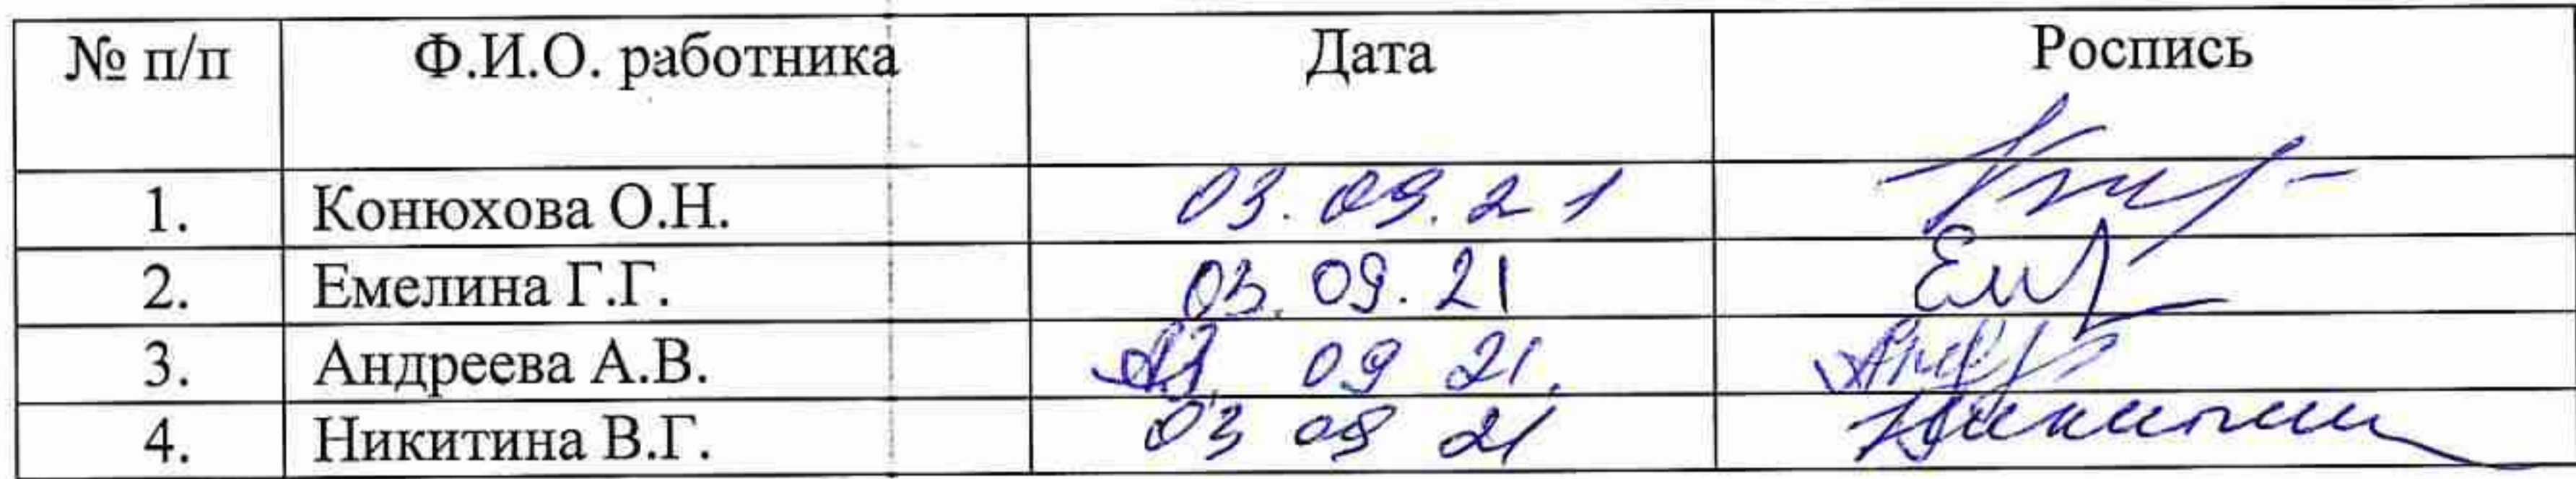 № п/п Ф.И.О. работника Дата Роспись
1. Конюхова О.Н. 03.09.21
2. Емелина Г.Г. 03.09.21
3. Андреева А.В. 09 21.
4. Никитина В.Г. 03 09 21